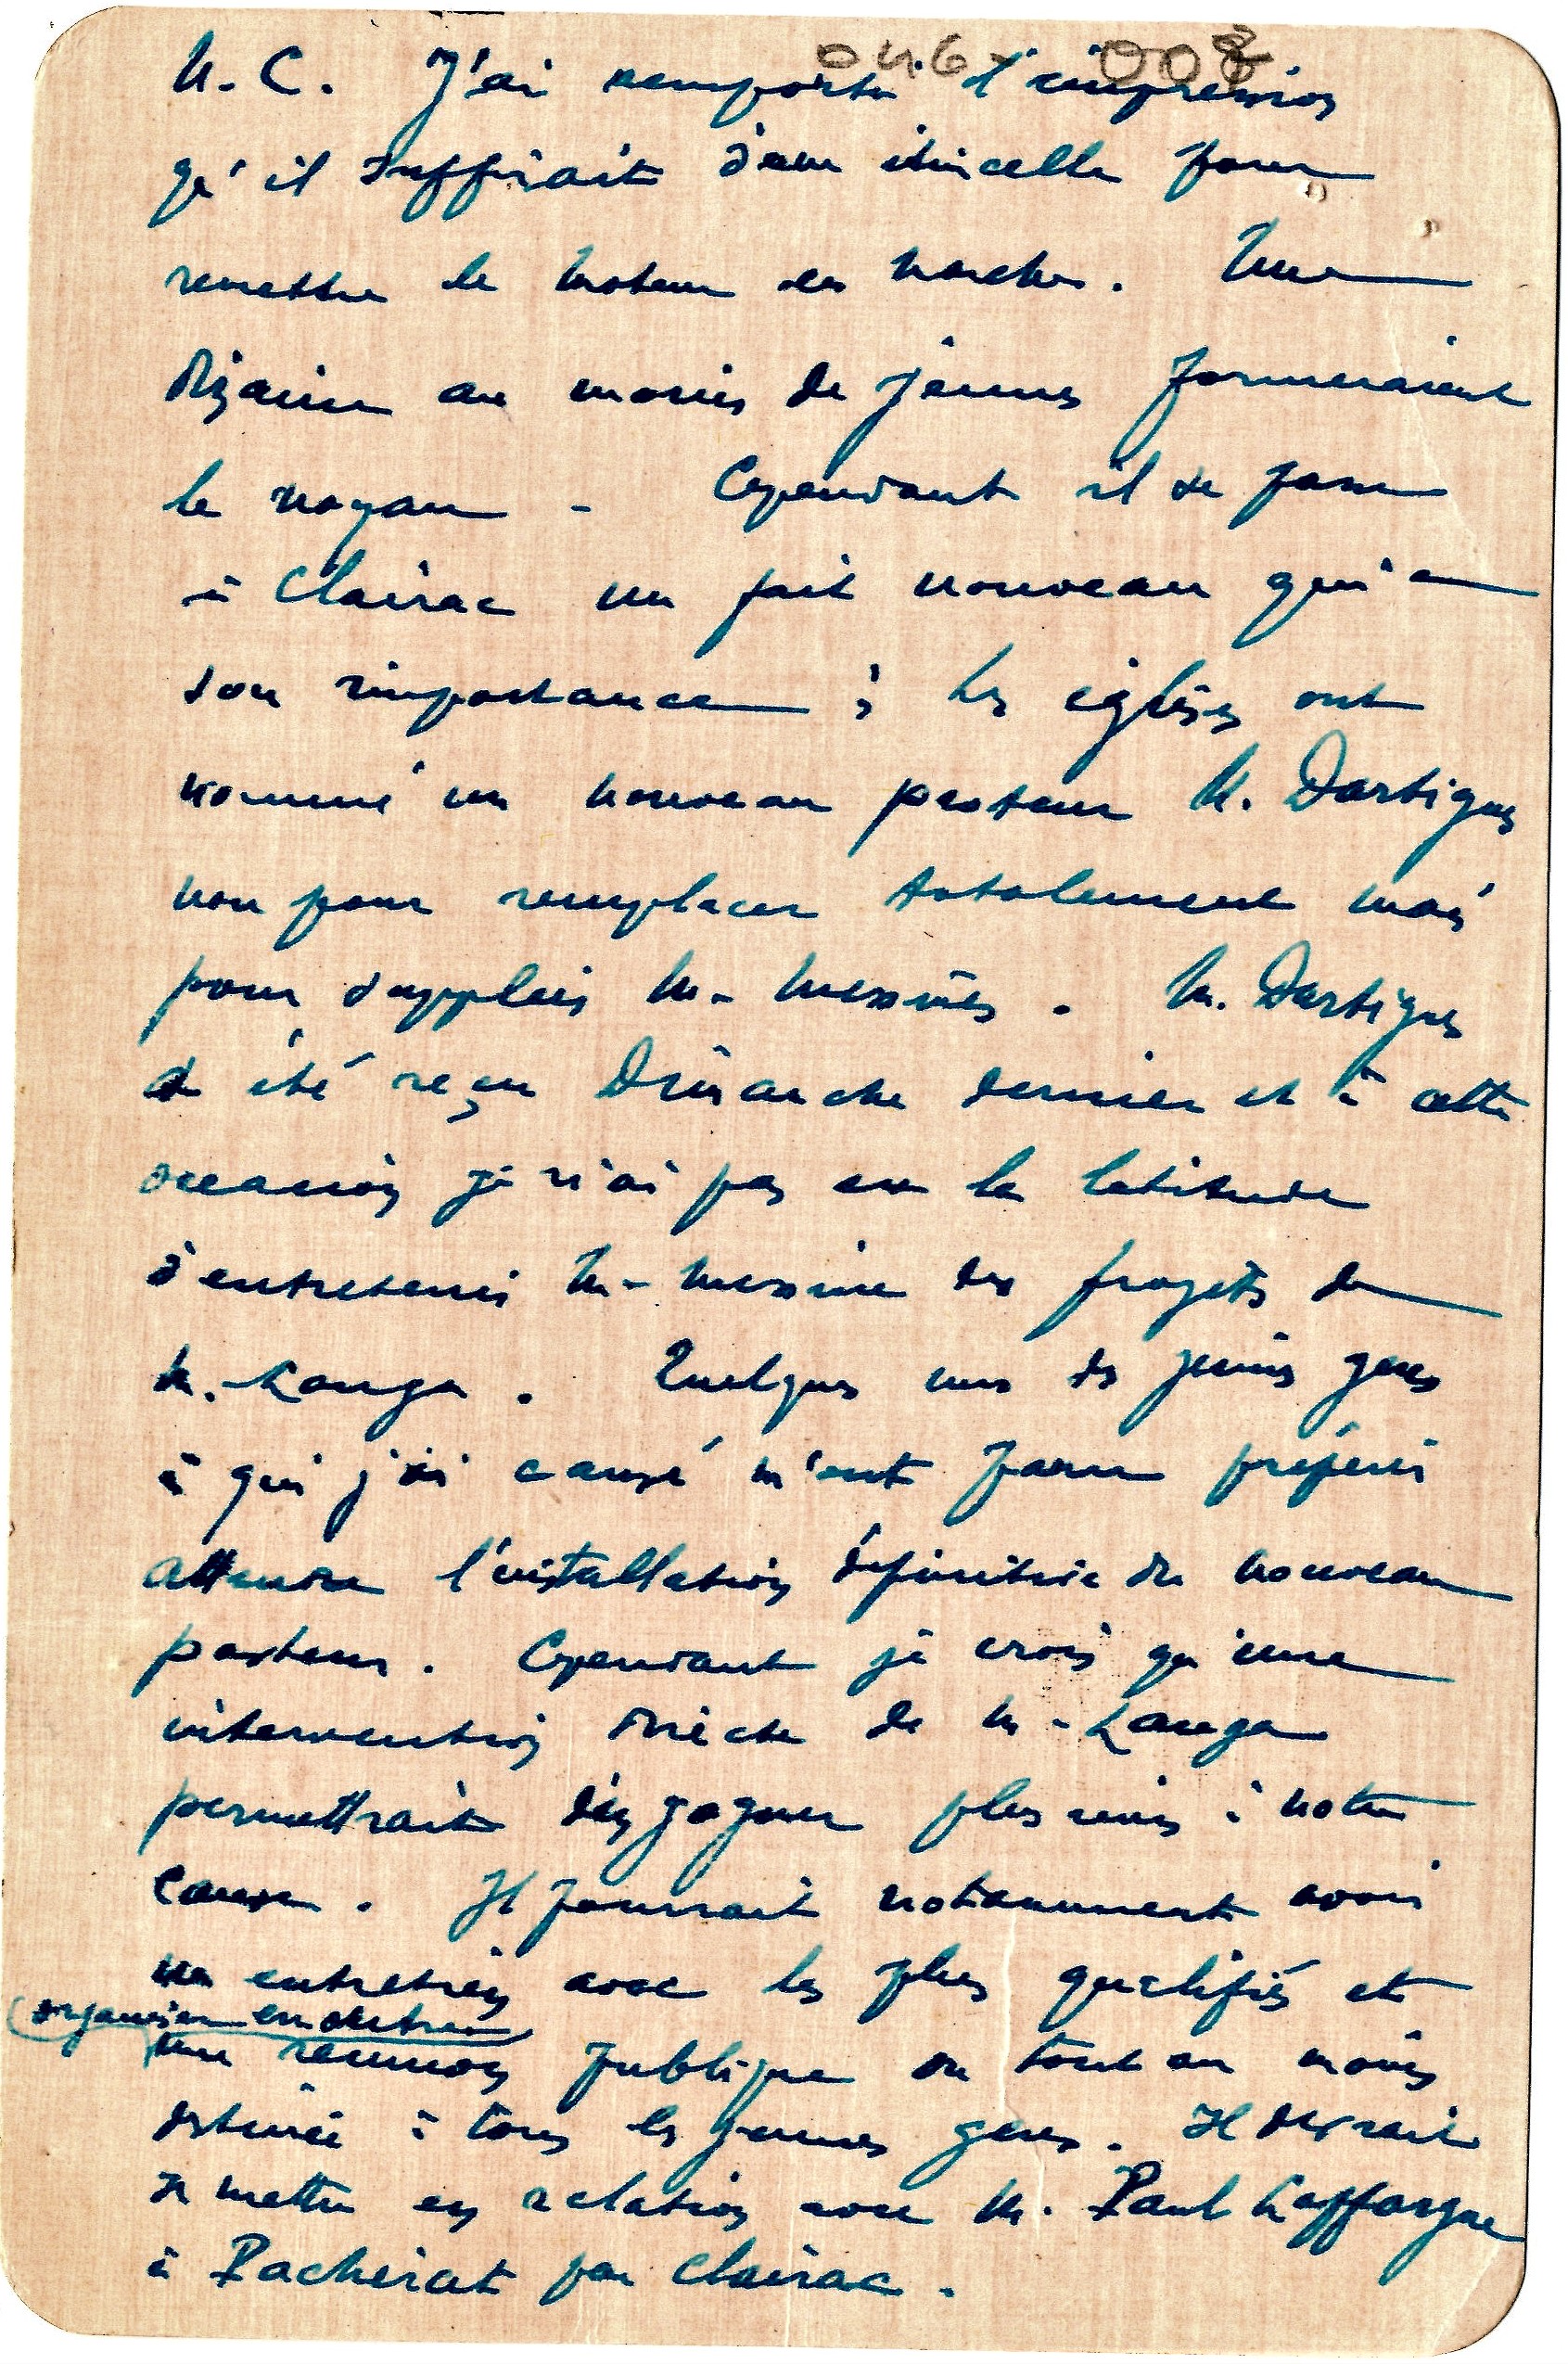 046-008
U.C. J'ai remporté l'impression
qu'il suffirait d'une étincelle pour
remettre le moteur en marche. Une
dizaine au moins de jeunes formeraient
le noyau - Cependant il se passe
à Clairac un fait nouveau qui a
son importance : les églises ont
nommé un nouveau pasteur M. Dartigues
non pour remplacer totalement mais
pour suppléer M. Messines. M. Dartigues
a été reçu Dimanche dernier et à cette
occasion je n'ai pas eu la latitude
d'entretenir M. Messine des projets de
M. Lauga. Quelques uns des jeunes gens
à qui j'ai causé m'ont paru préférer
attendre l'installation définitive du nouveau
pasteur. Cependant je crois qu'une
intervention directe de M. Lauga
permettrait d'en gagner plusieurs à notre
cause. Il pourrait notamment avoir
un entretien avec les plus qualifiés et
organiser en outre
une réunion publique ou tout au moins
destinée à tous les jeunes gens. Il devrait
se mettre en relation avec M. Paul Laffargue
à Pacherat par Clairac.